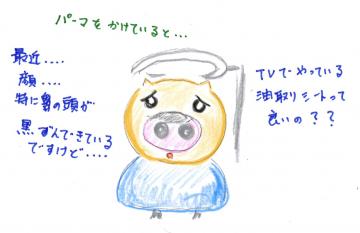 パーマをかけていると...
最近....
顔....
特に鼻の頭が
黒ずんできている
ですけど....
TVでやっている
油取りシートって
良いの??